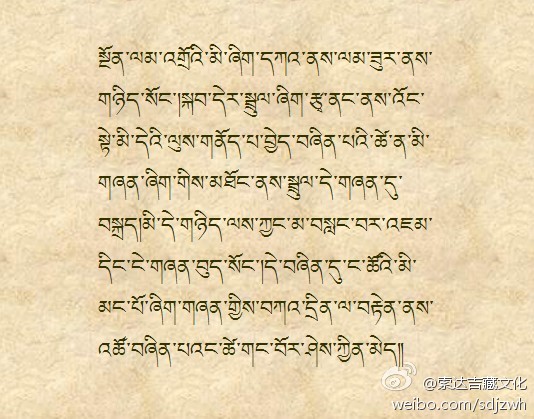 སྔོན་ལམ་འགྲོའི་མི་ཞིག་དཀའ་ནས་ལམ་ཟུར་ནས་
གཉིད་སོང་།སྐབ་དེར་སྦྲུལ་ཞིག་རྩྭ་ནང་ནས་འོང་
སྟེ་མི་དེའི་ལུས་གནོད་པ་བྱེད་བཞིན་པའི་ཚེ་ན་མི་
གཞན་ཞིག་གིས་མཐོང་ནས་སྦྲུལ་དེ་གཞན་དུ་
བསྐྲད།མི་དེ་གཉིད་ལས་ཀྱང་མ་བསླང་བར་འཇམ་
དིང་ངེ་གཞན་བུད་སོང་།དེ་བཞིན་དུ་ང་ཚོའི་མི་
མང་པོ་ཞིག་གཞན་གྱིས་བཀའ་དྲིན་ལ་བརྟེན་ནས་
འཚོ་བཞིན་པའང་ཚེ་གང་བོར་ཤེས་ཀྱིན་མེད།།
@索达吉藏文化
weibo.com/sdjzwh